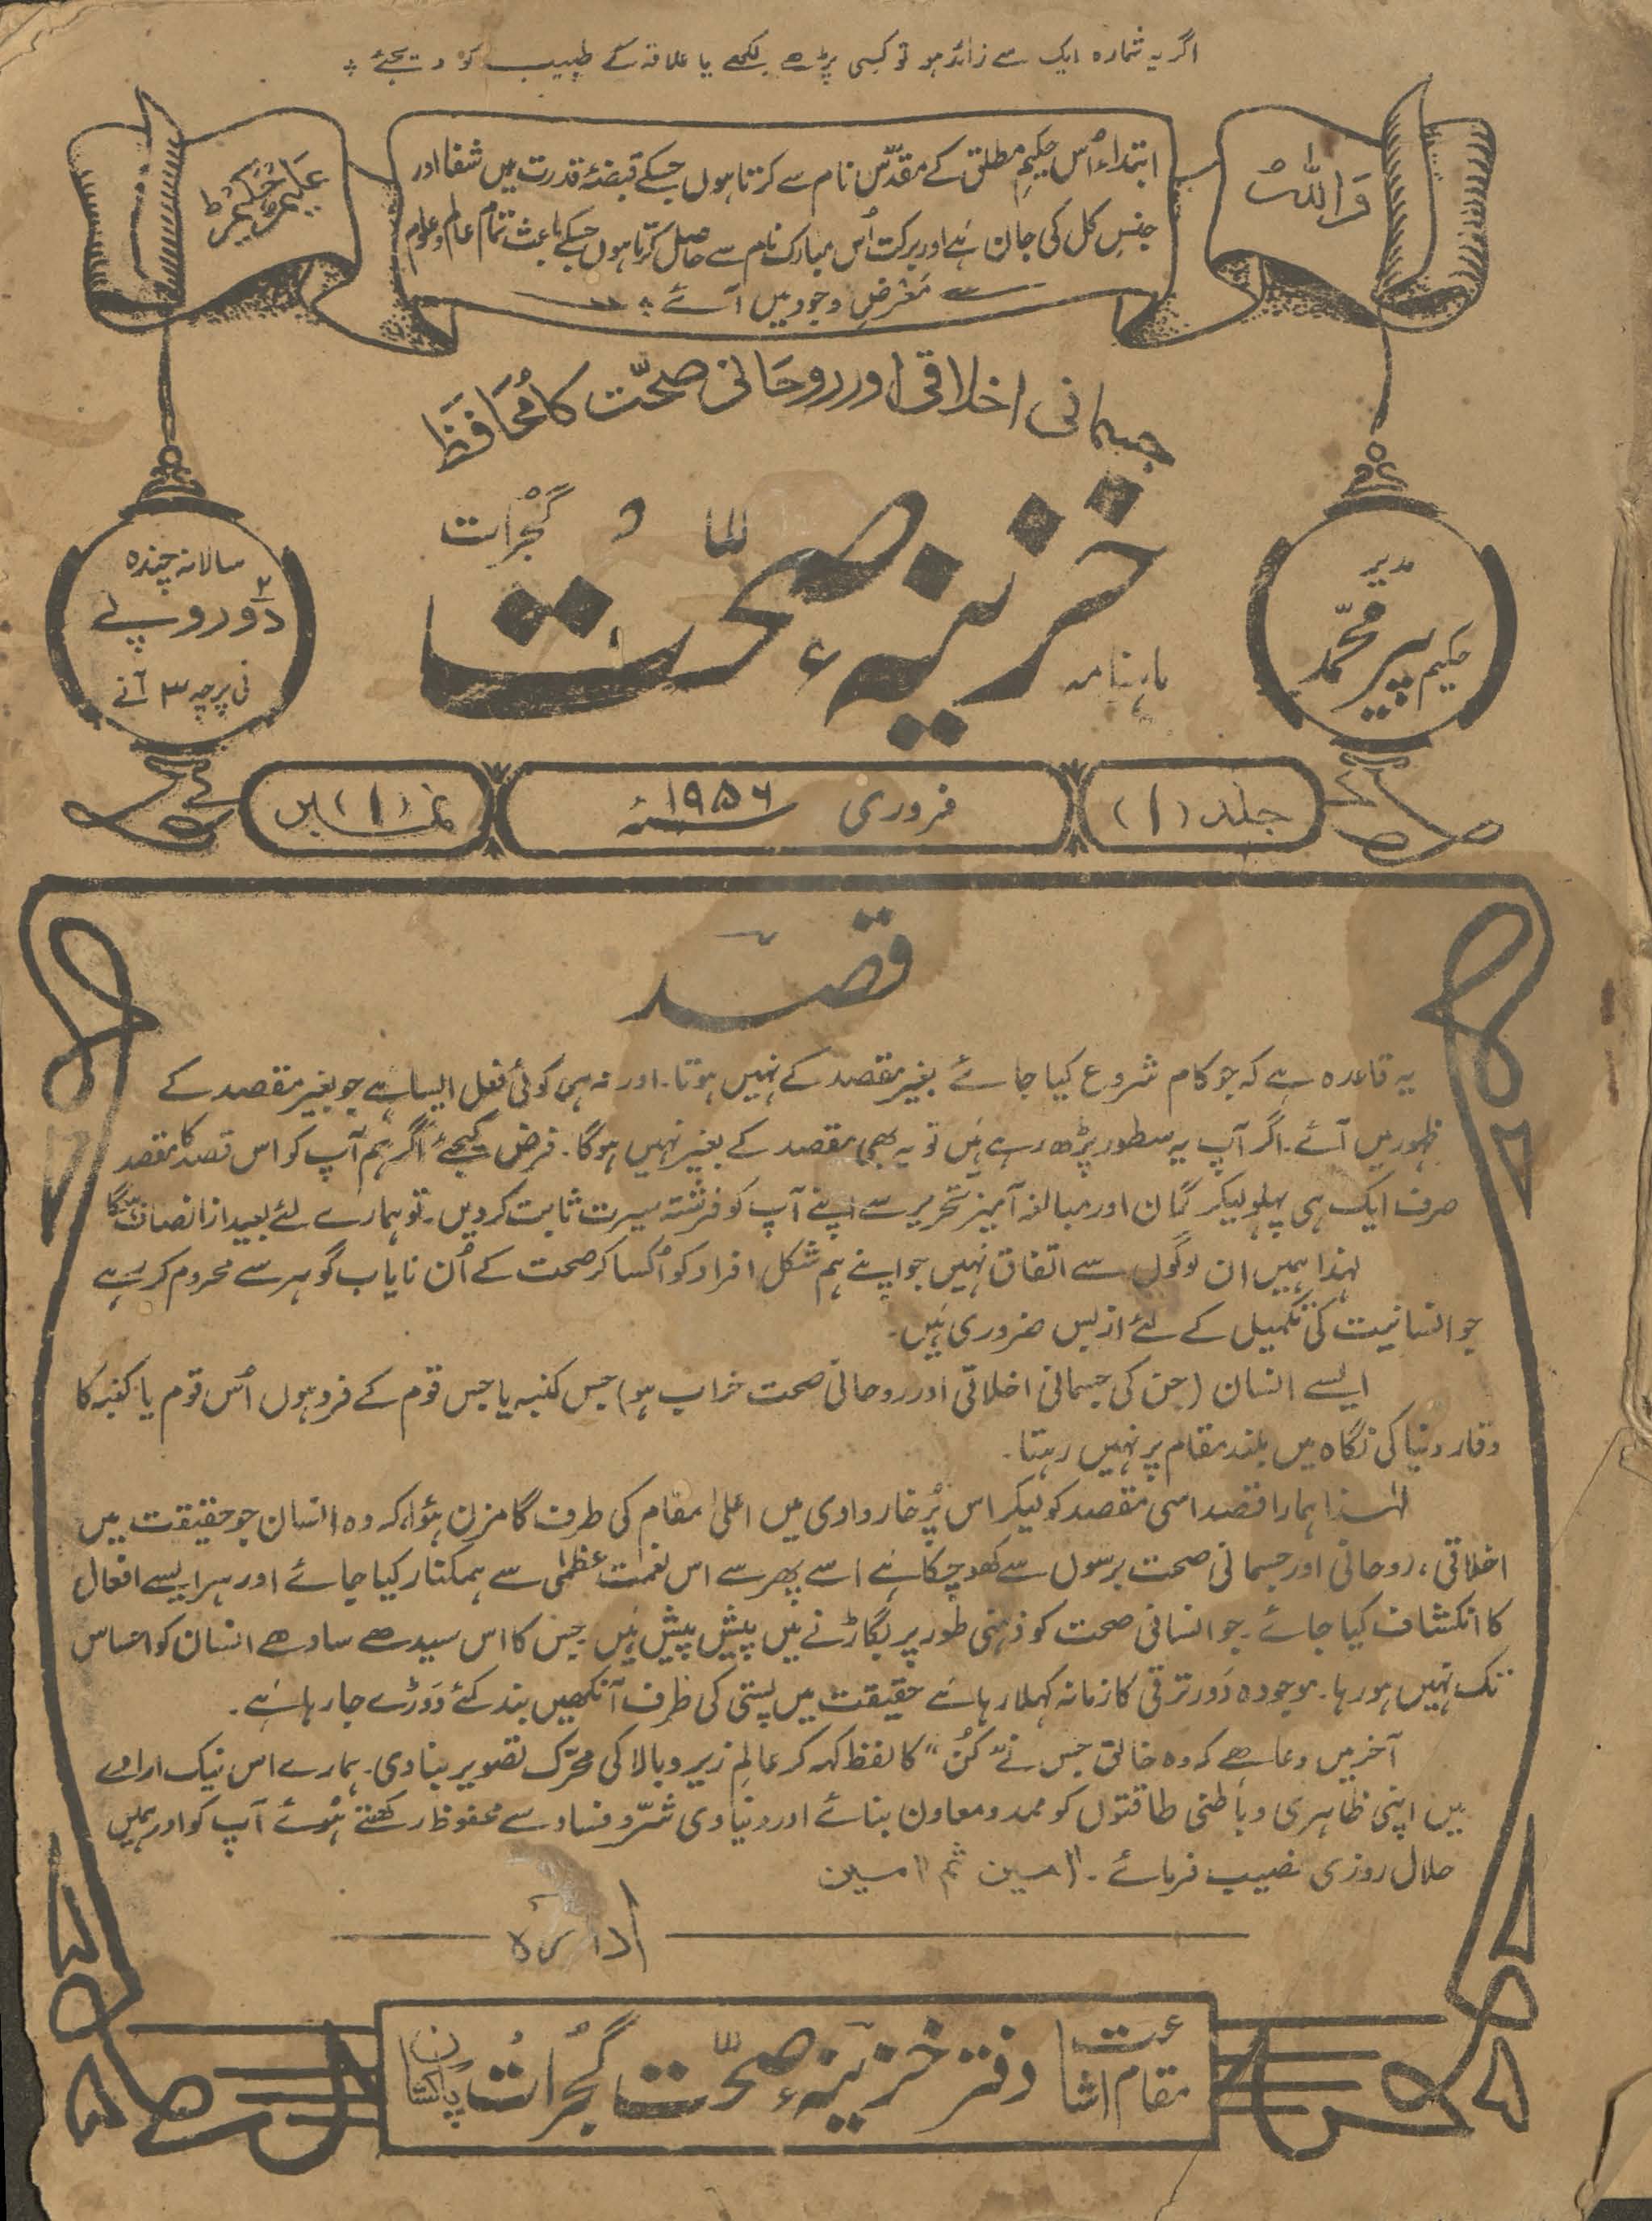 اگر یہ شمارہ ایک سے زائد ہو تو کسی پڑھے لکھے یا علاقہ کے طبیب کو دیجئے ⁘
وَاللّٰہُ
عَلِیْمٌ حَکِیْمٌ ط
ابتداء اُس حکیمِ مطلق کے مقدّس نام سے کرتا ہوں جسکے قبضۂ قدرت میں شفا اور
جنسِ کل کی جان ہَے اور برکت اُس مبارک نام سے حاصل کرتا ہوں جسکے باعث تمام عالم و علوم
مَعْرضِ وجود میں آئے ⁘
جسمانی اخلاقی اور روحَانی صحّت کا مُحَافَظ
ماہنامہ
خزینہءِ صحّت
گُجْرات
مدیر
حکیم پیر محمّد
سالانہ چندہ
۲
دو روپے
فی پرچہ ۳ آنے
جلد (۱)
فروری ۱۹۵۶ء
نمبر (۱)
قصد
یہ قاعدہ ہے کہ جو کام شروع کیا جائے بغیر مقصد کے نہیں ہوتا۔ اور نہ ہی کوئی فعل ایسا ہے جو بغیر مقصد کے
ظہور میں آئے۔ اگر آپ یہ سطور پڑھ رہے ہَیں تو یہ بھی مقصد کے بغیر نہیں ہوگا۔ فرض کیجئے اگر ہم آپ کو اس قصد کا مقصد
صرف ایک ہی پہلو لیکر گمان اور مبالغہ آمیز تحریر سے اپنے آپ کو فرشتہ سیرت ثابت کر دیں۔ تو ہمارے لئے بعید از انصاف ہوگا
لہذا ہمیں ان لوگوں سے اتفاق نہیں جو اپنے ہم شکل افراد کو اُکسا کر صحت کے اُن نایاب گوہر سے محروم کر رہے ہے
جو انسانیت کی تکمیل کے لئے ازبس ضروری ہَیں۔
ایسے انسان (جن کی جسمانی اخلاقی اور روحانی صحت خراب ہو) جس کنبہ یا جس قوم کے فرد ہوں اُس قوم یا کنبہ کا
وقار دنیا کی نگاہ میں بلند مقام پر نہیں رہتا۔
لہٰذا ہمارا قصد اسی مقصد کو لیکر اس پُرخار وادی میں اعلیٰ مقام کی طرف گامزن ہؤا، کہ وہ انسان جو حقیقت میں
اخلاقی، روحانی اور جسمانی صحت برسوں سے کھو چکا ہَے اسے پھر سے اس نعمتِ عظمیٰ سے ہمکنار کیا جائے اور ہر ایسے افعال
کا انکشاف کیا جائے۔ جو انسانی صحت کو ذہنی طور پر بگاڑنے میں پیش پیش ہَیں جس کا اس سیدھے سادھے انسان کو احساس
تک نہیں ہو رہا۔ موجودہ دَور ترقی کا زمانہ کہلا رہا ہَے حقیقت میں پستی کی طرف آنکھیں بند کئے دَوڑے جا رہا ہَے۔
آخر میں دعا ہے کہ وہ خالق جس نے "کُن" کا لفظ کہہ کر عالمِ زیر و بالا کی محرّک تصویر بنا دی۔ ہمارے اس نیک ارادے
میں اپنی ظاہری و باطنی طاقتوں کو ممد و معاون بنائے اور دنیاوی شرّ و فساد سے محفوظ رکھتے ہُوئے آپ کو اور ہمیں
حلال روزی نصیب فرمائے۔ اٰمین ثم اٰمین
ادارَہ
مقام اشاعت دفتر خزینہءِ صحّت گُجراتُ پاکستان